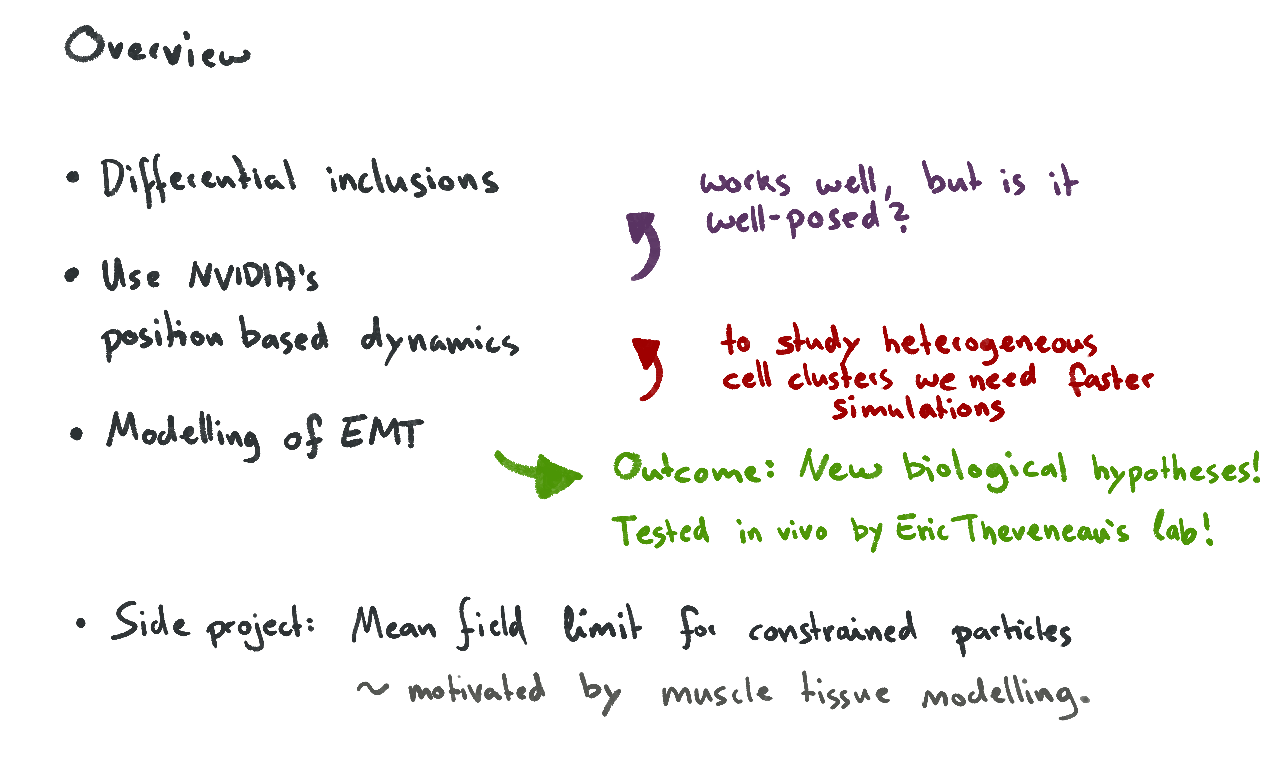 Overview
• Differential inclusions
works well, but is it
well-posed?
• Use NVIDIA's
position based dynamics
to study heterogeneous
cell clusters we need faster
simulations
• Modelling of EMT
Outcome: New biological hypotheses!
Tested in vivo by Eric Theveneau's lab!
• Side project: Mean field limit for constrained particles
~ motivated by muscle tissue modelling.